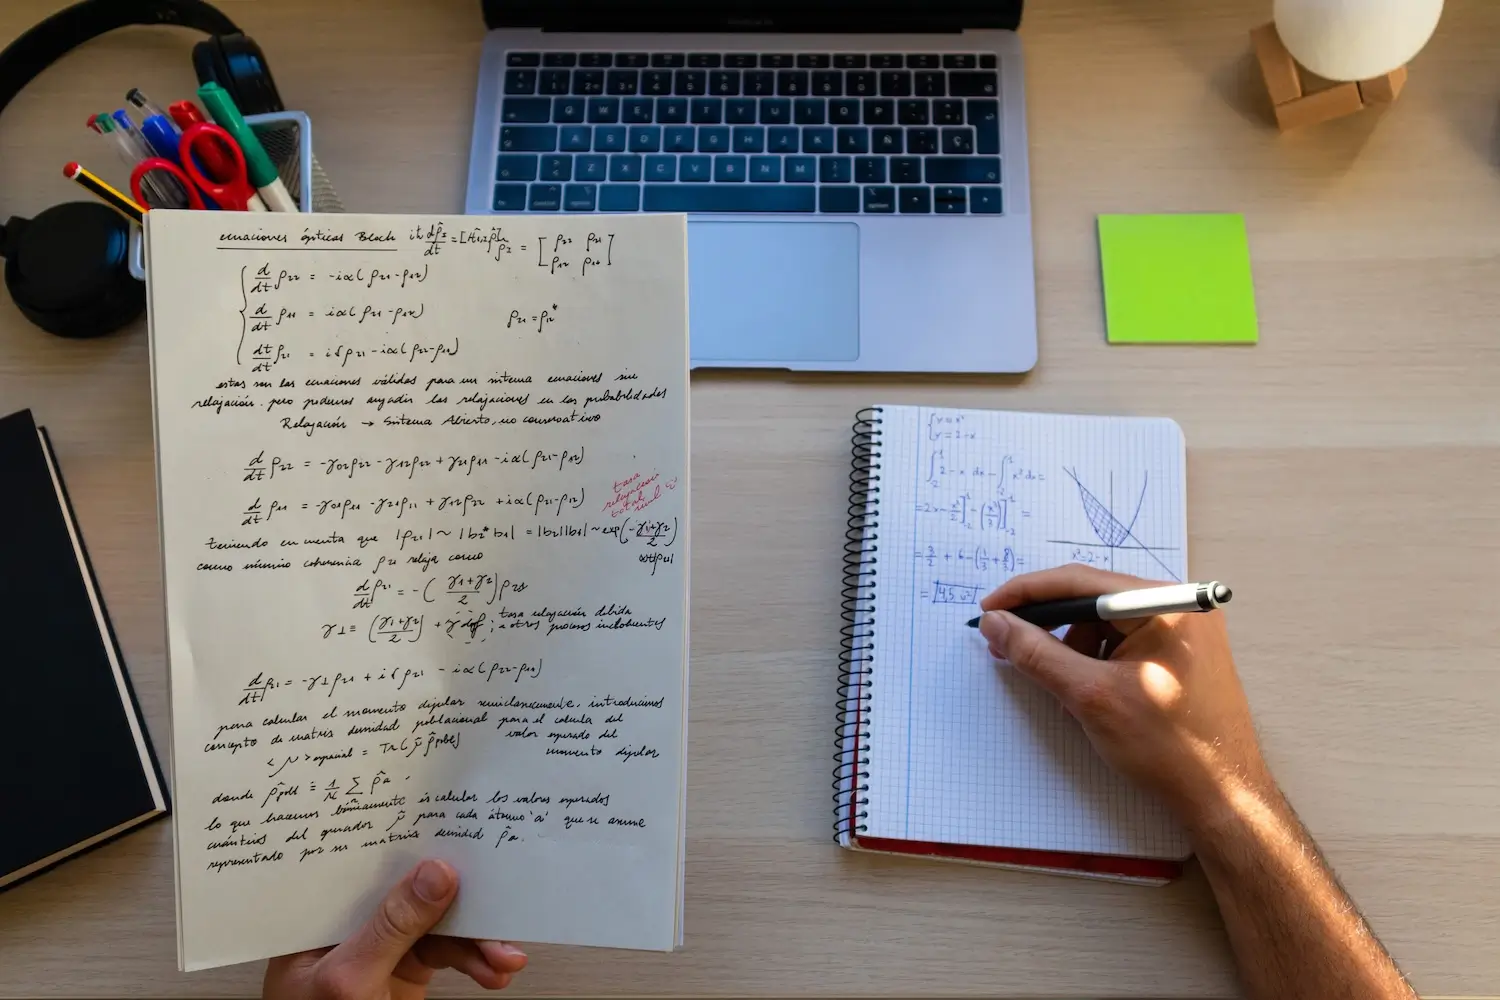 ecuaciones ópticas Bloch iħ dρ̂/dt = [Ĥ, ρ̂] ρ̂ = [ρ₂₂ ρ₂₁
ρ₁₂ ρ₁₁]
d/dt ρ₂₂ = -iα(ρ₂₁-ρ₁₂)
d/dt ρ₁₁ = iα(ρ₂₁-ρ₁₂) ρ₂₁ = ρ₁₂*
dt/dt ρ₂₁ = iδρ₂₁ - iα(ρ₂₂-ρ₁₁)
estas son las ecuaciones válidas para un sistema ecuaciones sin
relajación. pero podemos añadir las relajaciones en las probabilidades
Relajación → Sistema Abierto, no conservativo
d/dt ρ₂₂ = -γ₀₂ρ₂₂ - γ₁₂ρ₂₂ + γ₂₁ρ₁₁ - iα(ρ₂₁-ρ₁₂)
tasa
relajación
total
nivel
d/dt ρ₁₁ = -γ₀₁ρ₁₁ - γ₂₁ρ₁₁ + γ₁₂ρ₂₂ + iα(ρ₂₁-ρ₁₂)
teniendo en cuenta que |ρ₂₁| ~ |b₂* b₁| = |b₂||b₁| ~ exp(-γ₁+γ₂/2)
como mínimo coherencia ρ₂₁ relaja como
d/dt ρ₂₁ = -(γ₁+γ₂/2)ρ₂₁
γ⊥ ≡ (γ₁+γ₂/2) + γ ; tasa relajación debida
a otros procesos
d/dt ρ₂₁ = -γ⊥ρ₂₁ + iδρ₂₁ - iα(ρ₂₂-ρ₁₁)
para calcular el momento dipolar semiclásicamente, introducimos
concepto de matriz densidad poblacional para el calcula del
valor esperado del
<μ> espacial = Tr(μ̂ ρ̂pobl) momento dipolar
donde ρ̂pobl ≡ 1/N Σ ρ̂a.
lo que hacemos básicamente es calcular los valores esperados
cuánticos del operador μ̂ para cada átomo 'a' que se asume
representado por su matriz densidad ρ̂a.
Q W E R T Y U I O P
A S D F G H J K L Ñ Ç
Z X C V B N M
{y = x²
y = 2-x
∫₋₂¹ 2-x dx - ∫₋₂¹ x² dx =
= 2x - x²/2]₋₂¹ - (x³/3)]₋₂¹ =
= 3/2 + 6 - (1/3 + 8/3) =
= 4,5 u²
x²=2-x